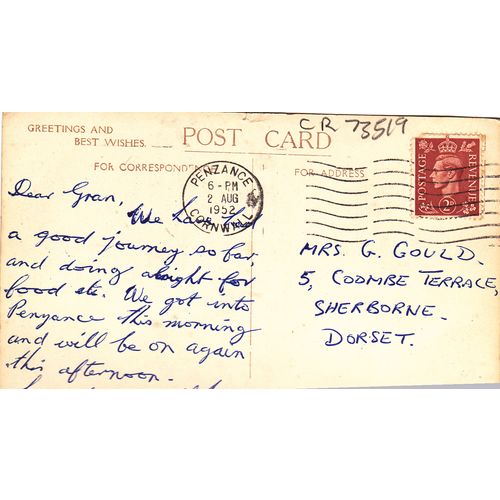 CR 73519
GREETINGS AND
BEST WISHES.
POST CARD
FOR CORRESPONDEN
FOR ADDRESS
PENZANCE
6 - PM
2 AUG
1952
CORNWALL
POSTAGE
REVENUE
Dear Gran,
We have had
a good journey so far
and doing alright for
food etc. We got into
Penzance this morning
and will be on again
this afternoon.
MRS. G. GOULD.
5, COOMBE TERRACE,
SHERBORNE.
DORSET.